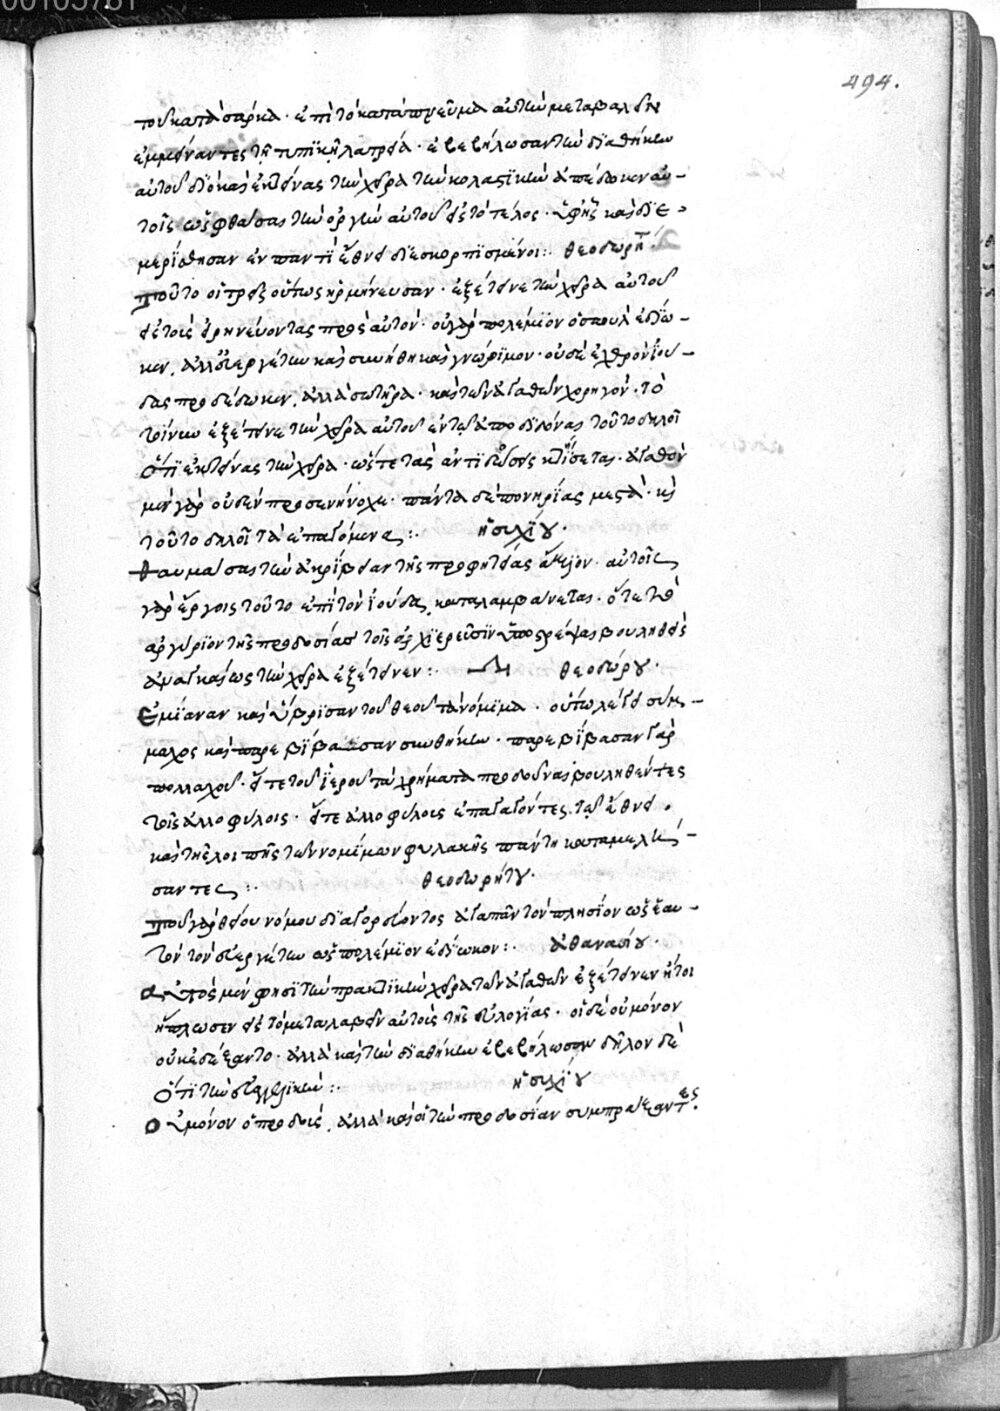 00105781
494.
του κατὰ σάρκα· ἐπὶ τὸ κατὰ πνεῦμα αὐτῶν μεταβαλεῖν
ἐμμείναντες τῇ τυπικῇ λατρείᾳ· ἐβεβήλωσαν τὴν διαθήκην
αὐτοῦ διὸ καὶ ἐκτείνας τὴν χεῖρα τὴν κολαστικὴν ἀπέδωκεν αὐ-
τοῖς ὡς φθασας τὴν ὀργὴν αὐτοῦ εἰς τὸ τέλος· ἐφ' ᾗ καὶ διε
μερίσθησαν ἐν παντὶ ἔθνει διεσκορπισμένοι:· θεοδωρήτ
τοῦτο οἱ τρεῖς οὕτως ἡρμήνευσαν· ἐξέτεινε τὴν χεῖρα αὐτοῦ
εἰς τοὺς εἰρηνεύοντας πρὸς αὐτὸν· οὐ γὰρ πολέμιον ὁ σαοὺλ ἐδίω-
κεν, ἀλλ' εὐεργέτην καὶ συνήθη καὶ γνώριμον· οὐδὲ ἐχθρὸν ἰού-
δας προδέδωκεν, ἀλλὰ σωτῆρα· καὶ τῶν ἀγαθῶν χορηγὸν· τὸ
τοίνυν ἐξέτεινε τὴν χεῖρα αὐτοῦ ἐν τῷ ἀποδιδόναι τοῦτο δηλοῖ
ὅτι ἐκτείνας τὴν χεῖρα· ὥστε τὰς ἀντιδόσεις κτίσεται· ἀγαθὸν
μὲν γὰρ οὐδὲν προσενήνοχε· πάντα δὲ πονηρίας μεστά· κὶ
τοῦτο δηλοῖ τὰ ἐπαγόμενα:· ἡσυχίου·
θαυμάσας τὴν ἀκρίβειαν τῆς προφητείας ἄξιον· αὐτοῖς
γὰρ ἔργοις τοῦτο ἐπὶ τὸν ἰούδα καταλαμβάνεται· ὅτε τὸ
ἀργύριον τῆς προδοσίας τοῖς ἀρχιερεῦσιν ὑποστρέψαι βουληθεὶς
ἀναγκαίως τὴν χεῖρα ἐξέτεινεν:· θεοδώρου·
Ἐμίαναν καὶ ὕβρισαν τοῦ θεοῦ τὰ νόμιμα· οὕτω λέγει σύμ-
μαχος καὶ παρεβίβασαν συνθήκην· παρεβίβασαν γὰρ
πολλαχοῦ· ὅτε τοῦ ἱεροῦ τὰ χρήματα προδοῦναι βουληθέντες
τοῖς ἀλλοφύλοις· ὅτε ἀλλοφύλους ἐπαγαγόντες τῷ ἔθνει·
καὶ τῆς λοιπῆς τῶν νομίμων φυλακῆς πάντη καταμελή-
σαντες:· θεοδωρήτου·
τοῦ γὰρ θείου νόμου διαγορεύοντος ἀγαπᾶν τὸν πλησίον ὡς ἑαυ-
τὸν τὸν εὐεργέτην ὡς πολέμιον ἐδίωκον:· ἀθανασίου·
αὐτὸς μὲν φησὶ τὴν πρακτικὴν χεῖρα τῶν ἀγαθῶν ἐξέτεινεν ἤτοι
ἥπλωσεν εἰς τὸ μεταλαβεῖν αὐτοὺς τῆς εὐλογίας· οἱ δὲ οὐ μόνον
οὐκ ἐδέξαντο· ἀλλὰ καὶ τὴν διαθήκην ἐβεβήλωσαν δῆλον δὲ
ὅτι τὴν εὐαγγελικὴν:· ἡσυχίου
οὐ μόνον ὁ προδοὺς, ἀλλὰ καὶ οἱ τὴν προδοσίαν συμπράξαντες·